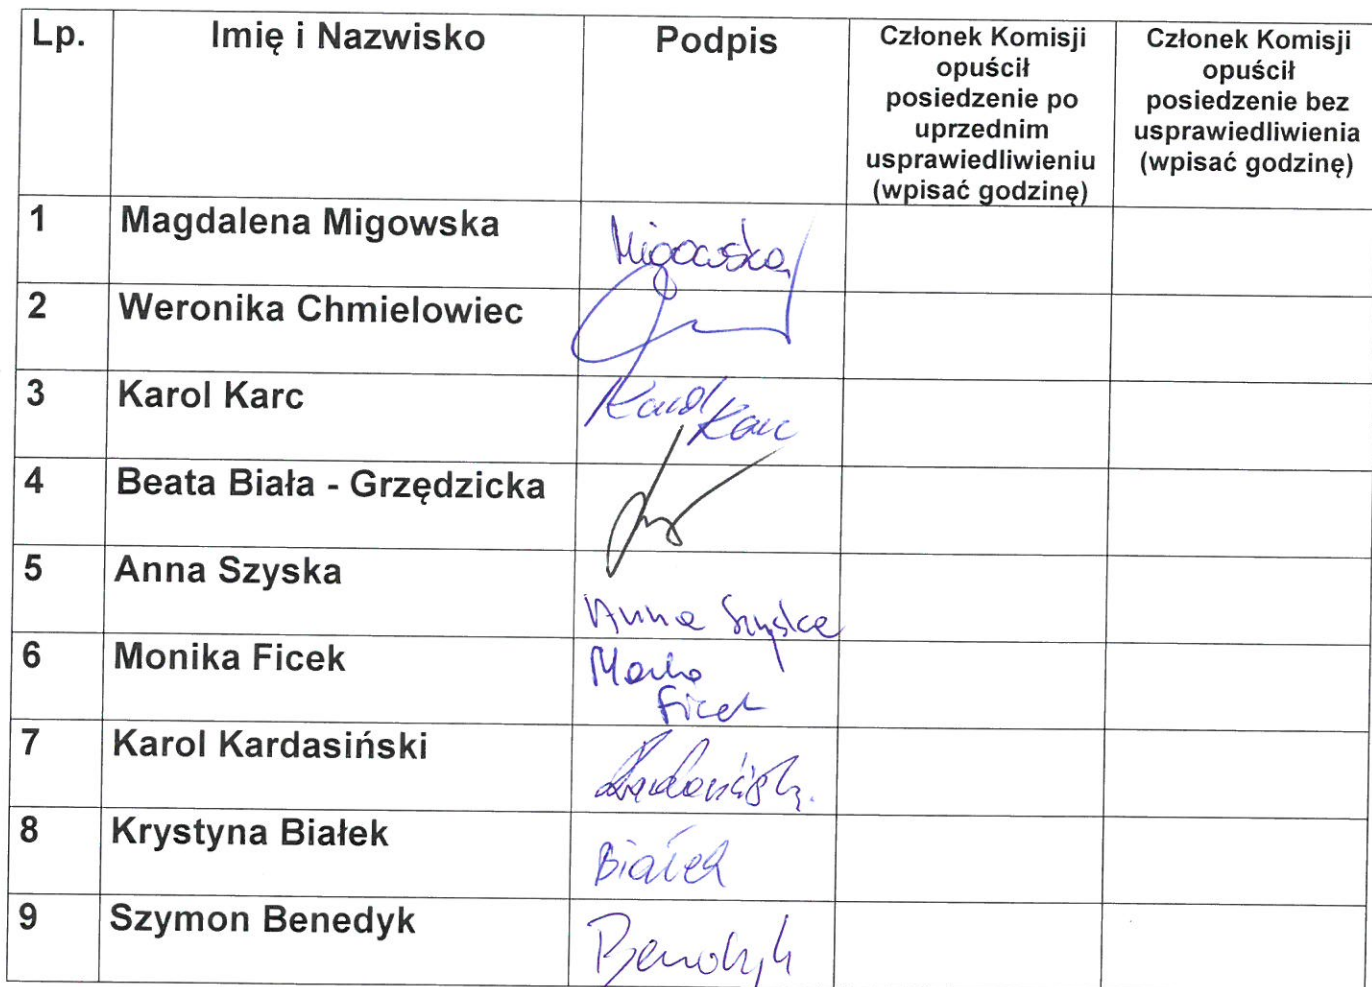 Lp.
Imię i Nazwisko
Podpis
Członek Komisji
opuścił
posiedzenie po
uprzednim
usprawiedliwieniu
(wpisać godzinę)
Członek Komisji
opuścił
posiedzenie bez
usprawiedliwienia
(wpisać godzinę)
1
Magdalena Migowska
Migowska
2
Weronika Chmielowiec
3
Karol Karc
Karol Karc
4
Beata Biała - Grzędzicka
5
Anna Szyska
Anna Szyska
6
Monika Ficek
Ficek
7
Karol Kardasiński
Kardasiński
8
Krystyna Białek
Białek
9
Szymon Benedyk
Benedyk